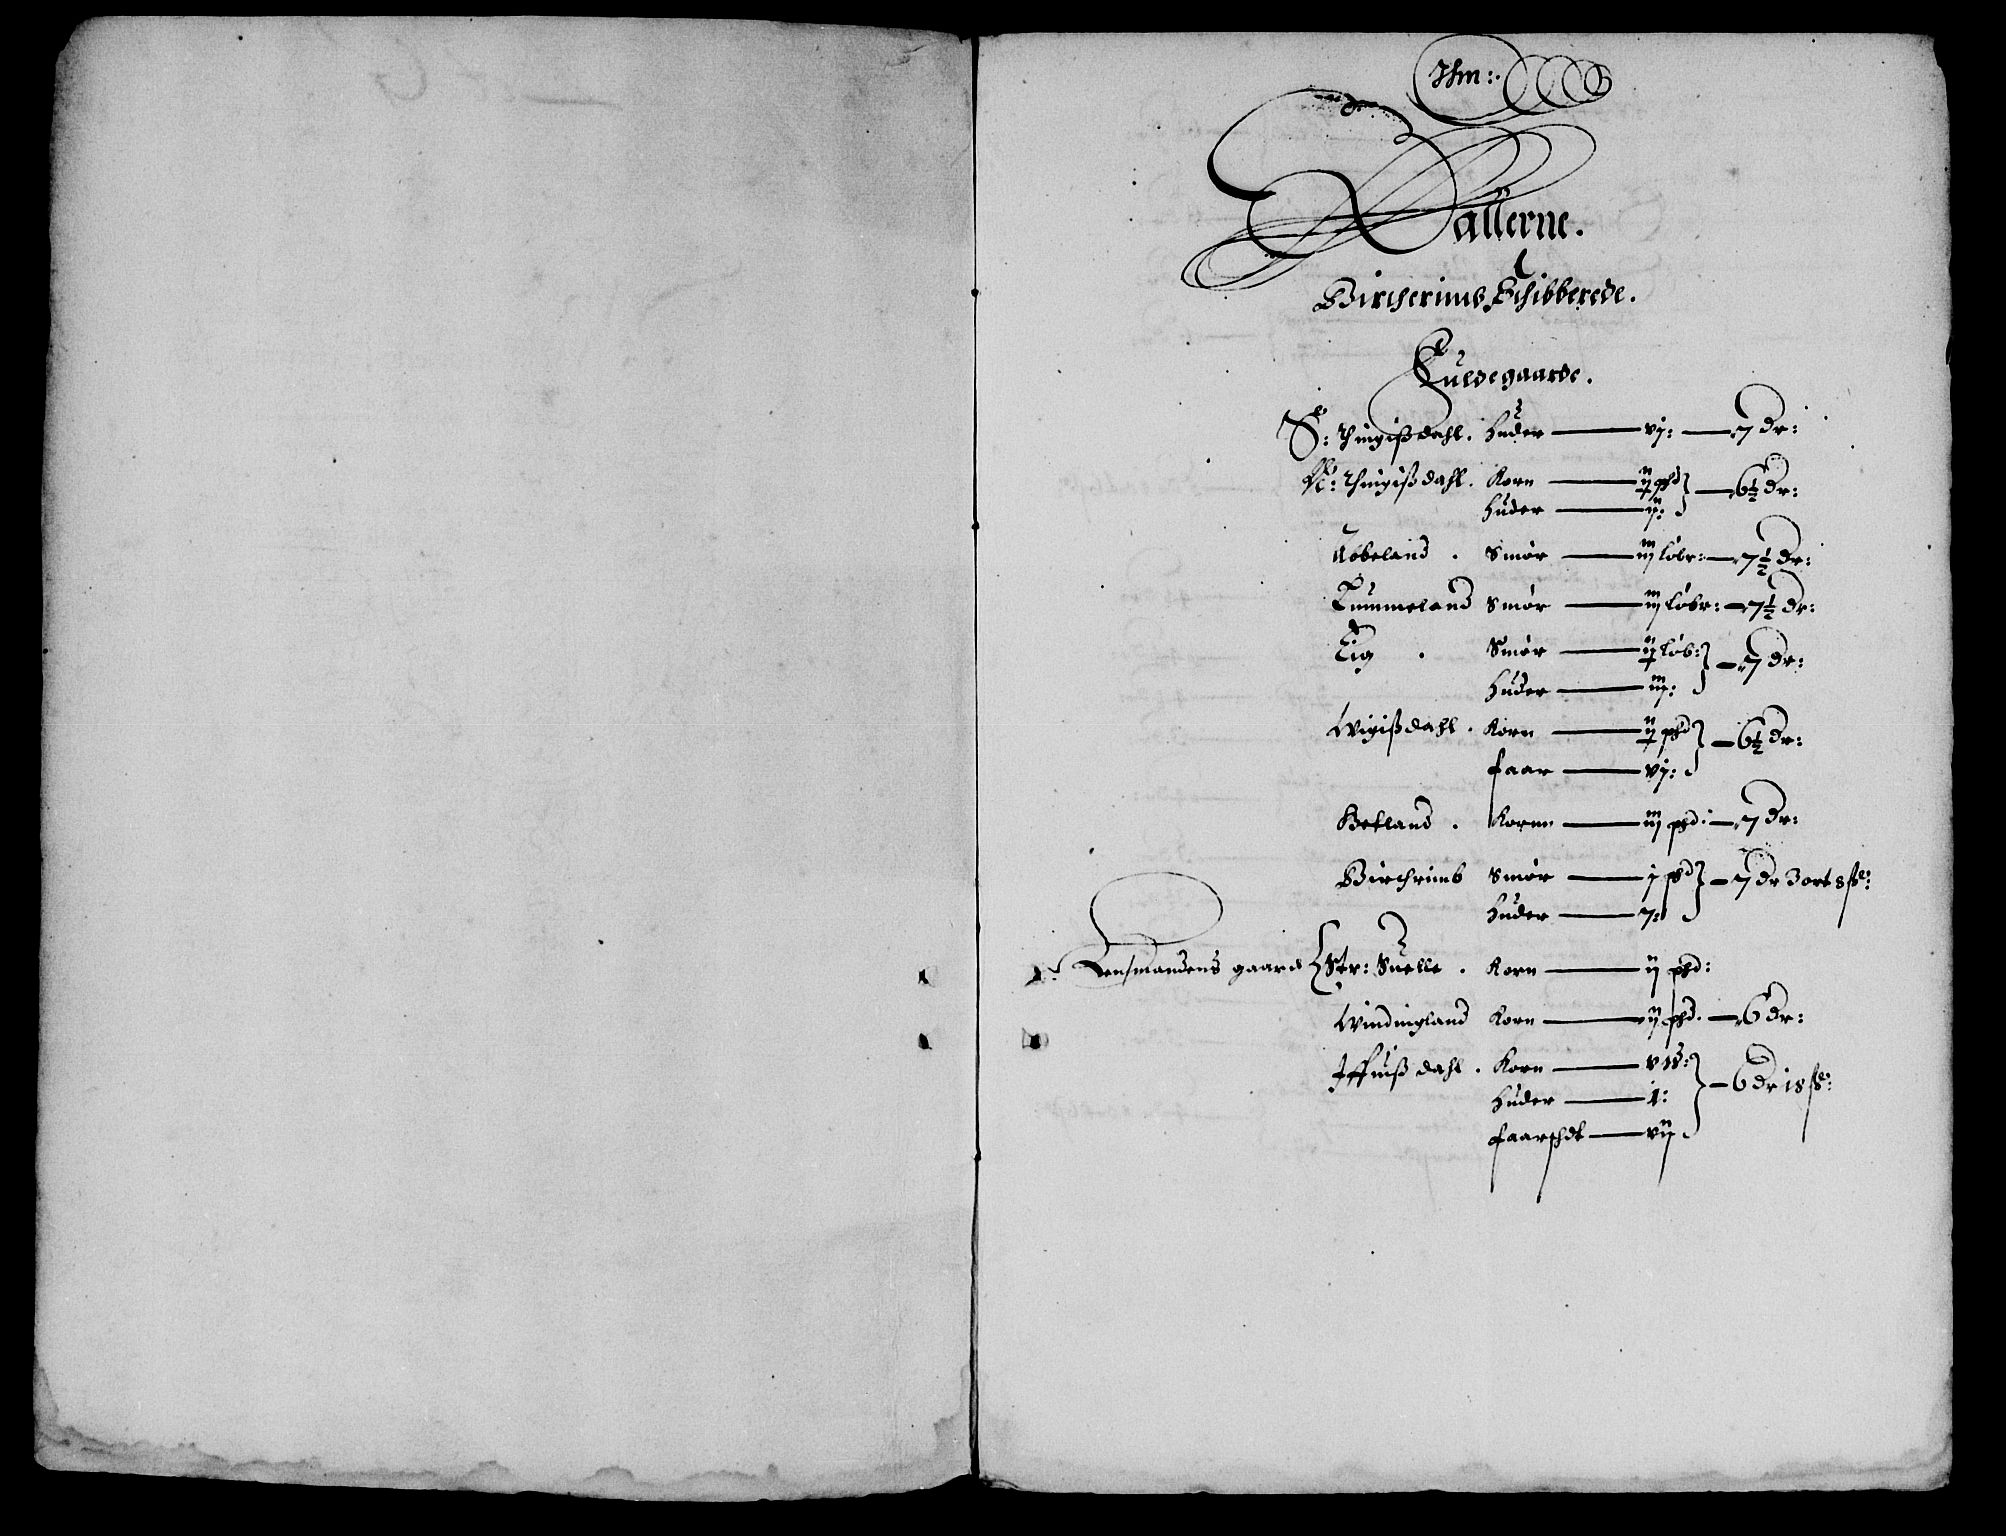 Jhm:
Dallerne.
Bircherims Schibberede.
Fuldegaarde.
S: Thingiszdahl. Huder — vj: — 7 dr:
N: Thingiszdahl. Korn — ij phd — 6½ dr:
Huder — ij:
Aabeland. Smør — iij løbr: — 7½ dr:
Tummeland Smør — iij løbr: — 7½ dr:
Eig. Smør — ij løb: — 7 dr:
Huder — iij:
Wigiszdahl. Korn — ij phd — 6½ dr:
Faar — vj:
Betland. Kornn — iij phd: — 7 dr:
Birchrimb Smør — j phd — 7 dr 3 ort 8 ss:
Huder —
Lensmandens gaard Str: Suelle. Korn — ij phd:
Windingland Korn — ij phd. — 6 dr:
Iffuisz dahl. Korn — — 6 dr 18 ss:
Huder — 1:
Faarschdt — vij